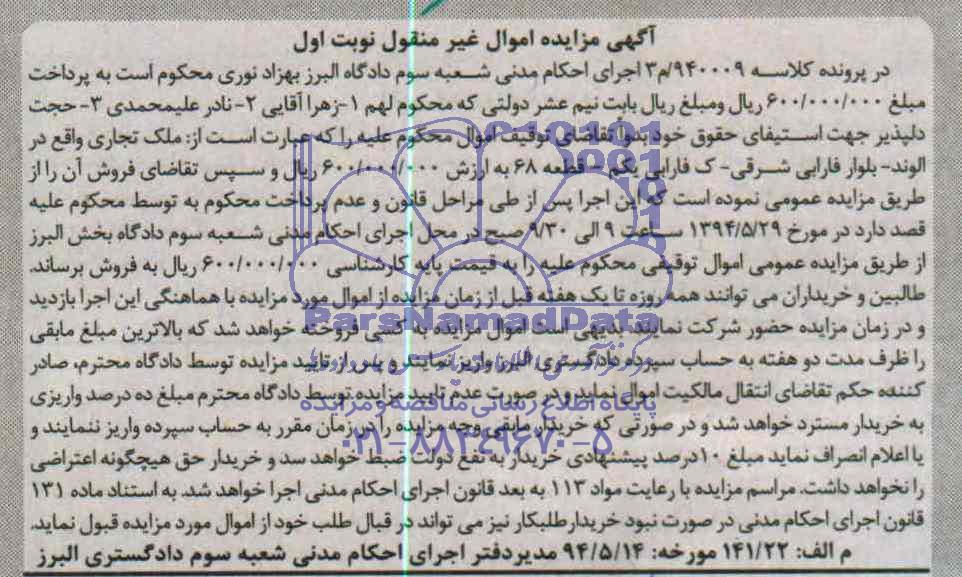 آگهی مزایده اموال غیر منقول نوبت اول
در پرونده کلاسه ۹۴۰۰۰۹/م۳ اجرای احکام مدنی شعبه سوم دادگاه البرز بهزاد نوری محکوم است به پرداخت
مبلغ ۶۰۰/۰۰۰/۰۰۰ ریال ومبلغ ریال بابت نیم عشر دولتی که محکوم لهم ۱-زهرا آقایی ۲- نادر علیمحمدی ۳-حجت
دلپذیر جهت استیفای حقوق خود بدواً تقاضای توقیف اموال محکوم علیه را که عبارت است از: ملک تجاری واقع در
الوند- بلوار فارابی شرقی- ک فارابی یکم - قطعه ۶۸ به ارزش ۶۰۰/۰۰۰/۰۰۰ ریال و سپس تقاضای فروش آن را از
طریق مزایده عمومی نموده است که این اجرا پس از طی مراحل قانون و عدم پرداخت محکوم به توسط محکوم علیه
قصد دارد در مورخ ۱۳۹۴/۵/۲۹ ساعت ۹ الی ۹/۳۰ صبح در محل اجرای احکام مدنی شعبه سوم دادگاه بخش البرز
از طریق مزایده عمومی اموال توقیفی محکوم علیه را به قیمت پایه کارشناسی ۶۰۰/۰۰۰/۰۰۰ ریال به فروش برساند.
طالبین و خریداران می توانند همه روزه تا یک هفته قبل از زمان مزایده از اموال مورد مزایده با هماهنگی این اجرا بازدید
و در زمان مزایده حضور شرکت نمایند. بدیهی است اموال مزایده به کسی فروخته خواهد شد که بالاترین مبلغ مابقی
را ظرف مدت دو هفته به حساب سپرده دادگستری البرز واریز نمایند و پس از تایید مزایده توسط دادگاه محترم، صادر
کننده حکم تقاضای انتقال مالکیت اموال نماید و در صورت عدم تایید مزایده توسط دادگاه محترم مبلغ ده درصد واریزی
به خریدار مسترد خواهد شد و در صورتی که خریدار مابقی وجه مزایده را در زمان مقرر به حساب سپرده واریز ننمایند و
یا اعلام انصراف نماید مبلغ ۱۰درصد پیشنهادی خریدار به نفع دولت ضبط خواهد سد و خریدار حق هیچگونه اعتراضی
را نخواهد داشت. مراسم مزایده با رعایت مواد ۱۱۳ به بعد قانون اجرای احکام مدنی اجرا خواهد شد. به استناد ماده ۱۳۱
قانون اجرای احکام مدنی در صورت نبود خریدارطلبکار نیز می تواند در قبال طلب خود از اموال مورد مزایده قبول نماید.
م الف: ۱۴۱/۲۲ مورخه: ۹۴/۵/۱۴ مدیردفتر اجرای احکام مدنی شعبه سوم دادگستری البرز
ParsNamadData
پایگاه اطلاع رسانی مناقصه و مزایده
۰۲۱-۸۸۳۴۹۶۷۰-۵